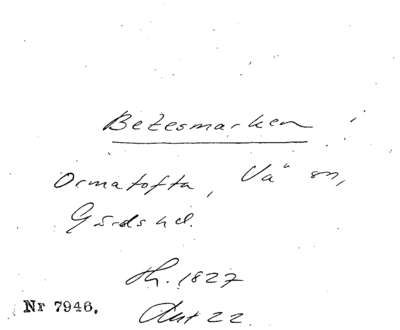 Betesmarken
Ormatofta, Vä sn,
Gärds hd.
Th. 1827
Akt 22
Nr 7946.